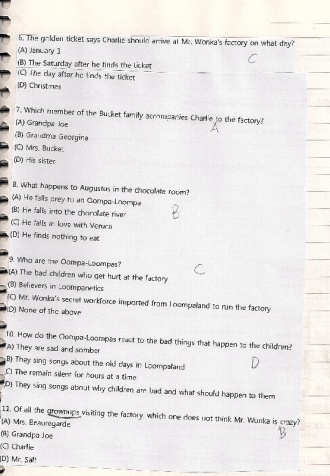 6. The golden ticket says Charlie should arrive at Mr. Wonka's factory on what day?
(A) January 1
C
(B) The Saturday after he finds the ticket
(C) The day after he finds the ticket
(D) Christmes
7. Which member of the Bucket family accompanies Charlie to the factory?
(A) Grandpa Joe
A
(B) Grandma Georgina
(C) Mrs. Bucket
(D) His sister
8. What happens to Augustus in the chocolate room?
(A) He falls prey to an Oompa-Loompa
(B) He falls into the chocolate river
B
(C) He falls in love with Veruca
(D) He finds nothing to eat
9. Who are the Oompa-Loompas?
C
(A) The bad children who get hurt at the factory
(B) Believers in Loompanetics
(C) Mr. Wonka's secret workforce imported from Loompaland to run the factory
(D) None of the above
10. How do the Oompa-Loompas react to the bad things that happen to the children?
A) They are sad and somber
B) They sing songs about the old days in Loompaland
D
C) The remain silent for hours at a time
D) They sing songs about why children are bad and what should happen to them
11. Of all the grownups visiting the factory, which one does not think Mr. Wonka is crazy?
(A) Mrs. Beauregarde
B
(B) Grandpa Joe
(C) Charlie
(D) Mr. Salt